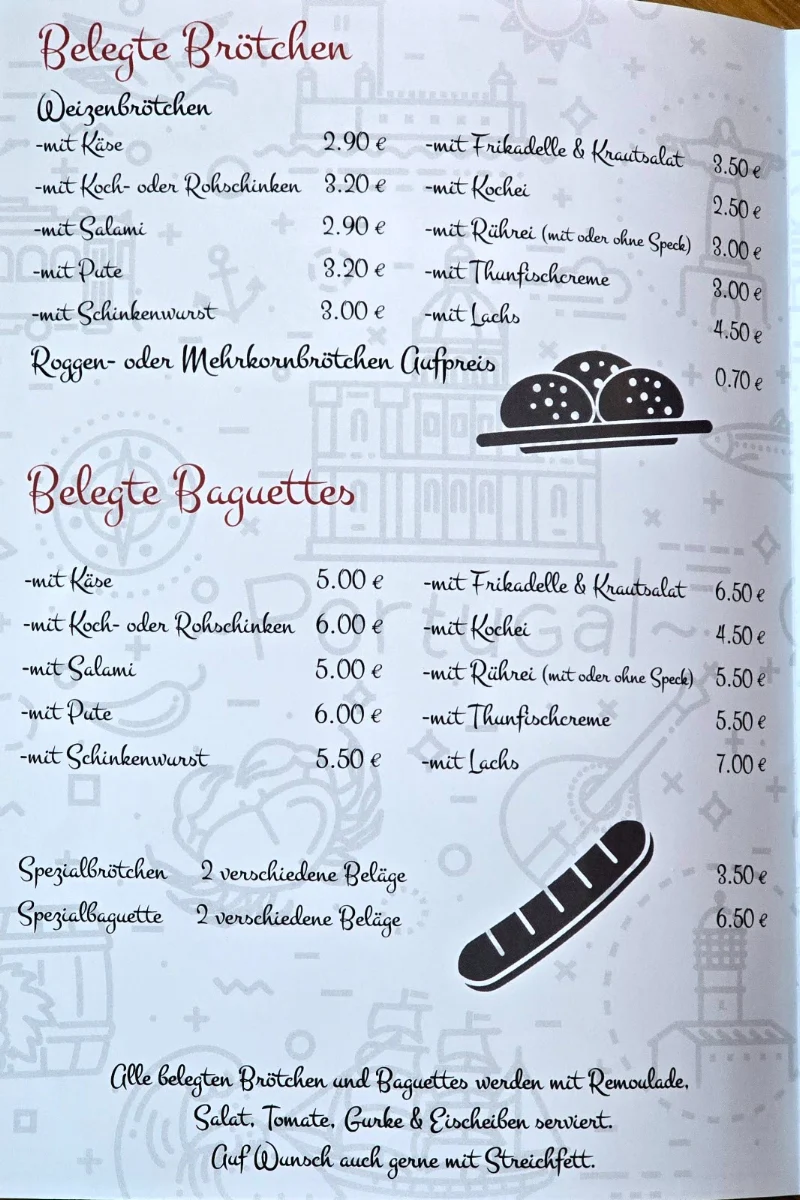 Belegte Brötchen
Weizenbrötchen
-mit Käse 2.90 €
-mit Koch- oder Rohschinken 3.20 €
-mit Salami 2.90 €
-mit Pute 3.20 €
-mit Schinkenwurst 3.00 €
-mit Frikadelle & Krautsalat 3.50 €
-mit Kochei 2.50 €
-mit Rührei (mit oder ohne Speck) 3.00 €
-mit Thunfischcreme 3.00 €
-mit Lachs 4.50 €
Roggen- oder Mehrkornbrötchen Aufpreis 0.70 €
Belegte Baguettes
-mit Käse 5.00 €
-mit Koch- oder Rohschinken 6.00 €
-mit Salami 5.00 €
-mit Pute 6.00 €
-mit Schinkenwurst 5.50 €
-mit Frikadelle & Krautsalat 6.50 €
-mit Kochei 4.50 €
-mit Rührei (mit oder ohne Speck) 5.50 €
-mit Thunfischcreme 5.50 €
-mit Lachs 7.00 €
Portugal~
Spezialbrötchen 2 verschiedene Beläge 3.50 €
Spezialbaguette 2 verschiedene Beläge 6.50 €
Alle belegten Brötchen und Baguettes werden mit Remoulade,
Salat, Tomate, Gurke & Eischeiben serviert.
Auf Wunsch auch gerne mit Streichfett.